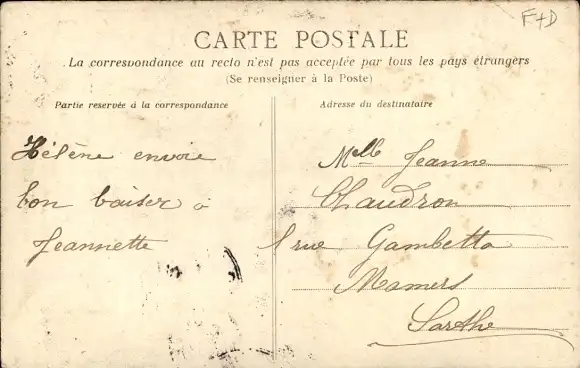 F+D
CARTE POSTALE
La correspondance au recto n'est pas acceptée par tous les pays étrangers
(Se renseigner à la Poste)
Partie reservée à la correspondance
Adresse du destinataire
Hélène envoie
bon baiser à
Jeannette
Melle Jeanne
Chaudron
rue Gambetta
Mamers
Sarthe